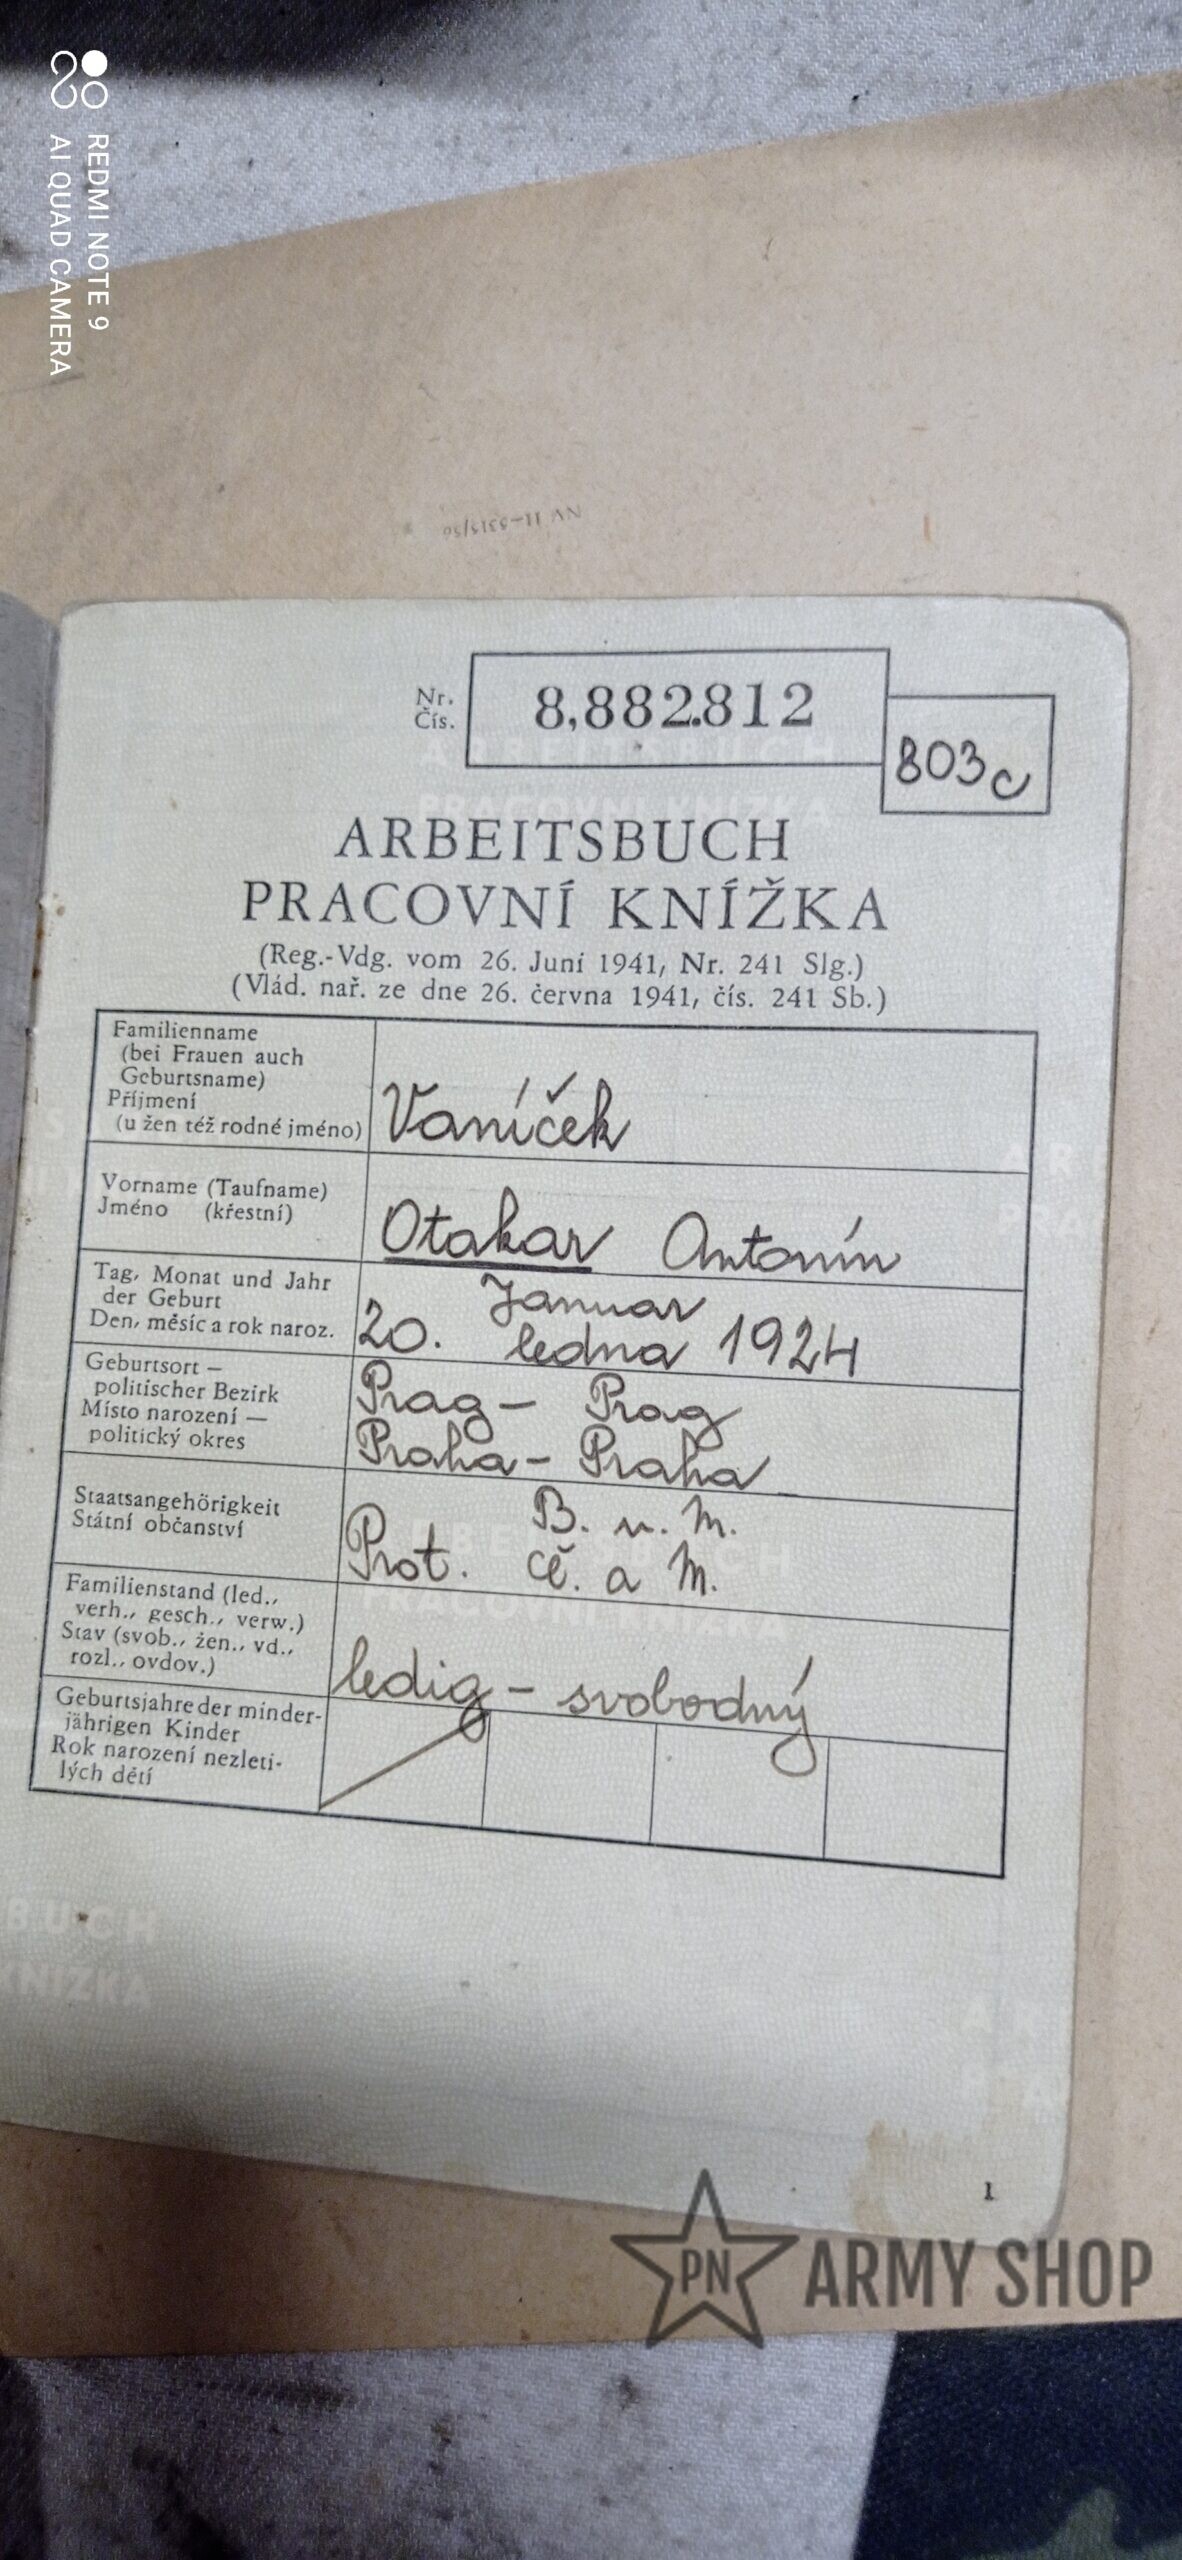 REDMI NOTE 9
AI QUAD CAMERA
NV 11-5315/50
Nr.
Čís.
8,882.812
803c
ARBEITSBUCH
PRACOVNÍ KNÍŽKA
(Reg.-Vdg. vom 26. Juni 1941, Nr. 241 Slg.)
(Vlád. nař. ze dne 26. června 1941, čís. 241 Sb.)
Familienname
(bei Frauen auch
Geburtsname)
Příjmení
(u žen též rodné jméno)
Vaníček
Vorname (Taufname)
Jméno (křestní)
Otakar Antonín
Tag, Monat und Jahr
der Geburt
Den, měsíc a rok naroz.
Januar
20. ledna 1924
Geburtsort —
politischer Bezirk
Místo narození —
politický okres
Prag - Prag
Praha - Praha
Staatsangehörigkeit
Státní občanství
B. u. M.
Prot. Č. a M.
Familienstand (led.,
verh., gesch., verw.)
Stav (svob., žen., vd.,
rozl., ovdov.)
ledig - svobodný
Geburtsjahre der minder-
jährigen Kinder
Rok narození nezleti-
lých dětí
ARBEITSBUCH
PRACOVNI KNIZKA
BUCH
KNIZKA
1
PN ARMY SHOP